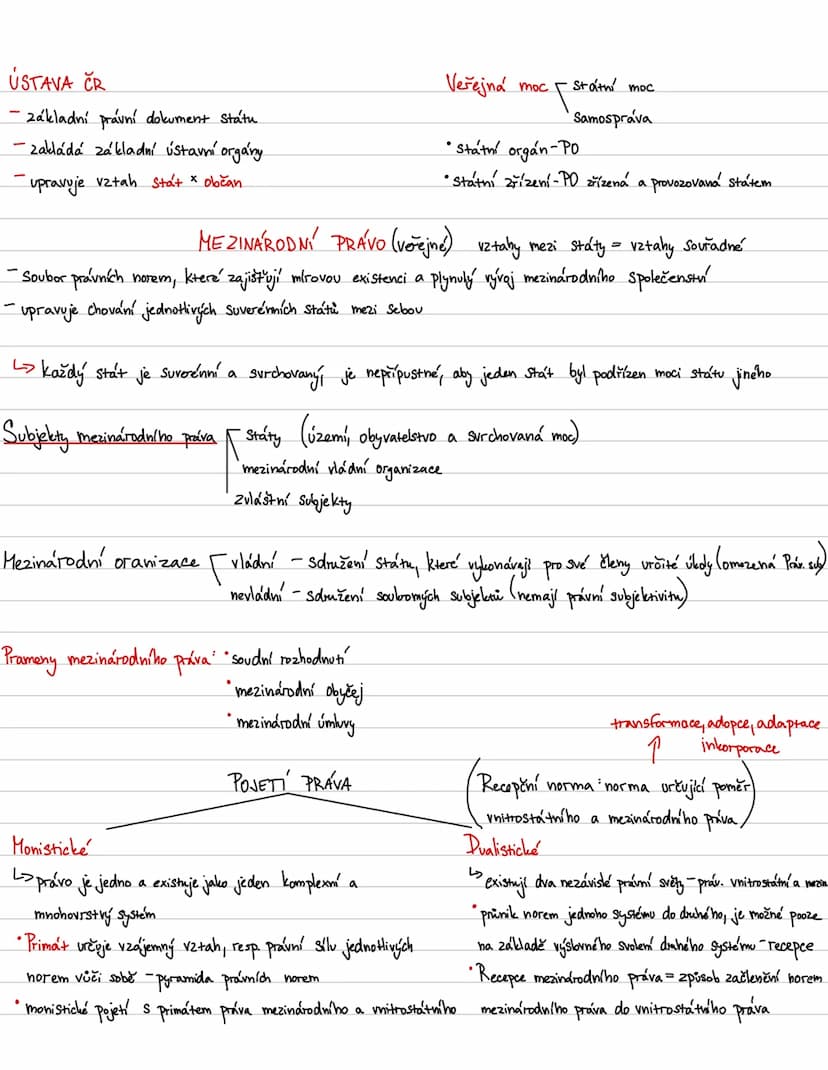 ÚSTAVA ČR
- základní právní dokument státu
- zakládá základní ústavní orgány
- upravuje vztah stát × občan
Veřejná moc
státní moc
samospráva
• státní orgán - PO
• státní zřízení - PO zřízená a provozovaná státem
MEZINÁRODNÍ PRÁVO (veřejné) vztahy mezi státy = vztahy souřadné
- soubor právních norem, které zajišťují mírovou existenci a plynulý vývoj mezinárodního společenství
- upravuje chování jednotlivých suverénních států mezi sebou
↳ každý stát je suverénní a svrchovaný, je nepřípustné, aby jeden stát byl podřízen moci státu jného
Subjekty mezinárodního práva
státy (území, obyvatelstvo a svrchovaná moc)
mezinárodní vládní organizace
zvláštní subjekty
Mezinárodní oranizace
vládní - sdružení státu, které vykonávají pro své členy určité úkoly (omezená Práv. sub)
nevládní - sdružení soukromých subjektů (nemají právní subjektivitu)
Prameny mezinárodního práva: • soudní rozhodnutí
• mezinárodní obyčej
• mezinárodní úmluvy
transformace, adopce, adaptace
inkorporace
↑
(Recepční norma: norma určující poměr
vnitrostátního a mezinárodního práva)
POJETÍ PRÁVA
Monistické
↳ právo je jedno a existuje jako jeden komplexní a
mnohovrstvý systém
• Primát určuje vzájemný vztah, resp. právní sílu jednotlivých
norem vůči sobě - pyramida právních norem
• monistické pojetí s primátem práva mezinárodního a vnitrostátního
Dualistické
↳ existují dva nezávislé právní světy - práv. vnitrostátní a mezin
• průnik norem jednoho systému do druhého, je možné pouze
na základě výslovného svolení druhého systému - recepce
• Recepce mezinárodního práva = způsob začlenění norem
mezinárodního práva do vnitrostátního práva